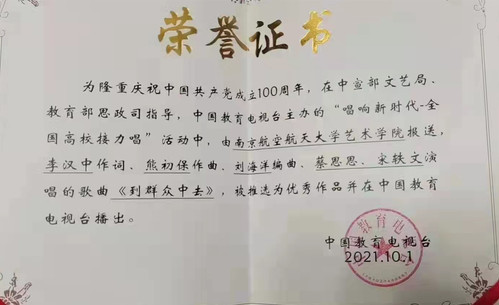 荣誉证书
为隆重庆祝中国共产党成立100周年，在中宣部文艺局、
教育部思政司指导，中国教育电视台主办的“唱响新时代-全
国高校接力唱”活动中，由南京航空航天大学艺术学院报送，
李汉中作词、熊初保作曲、刘海洋编曲、蔡思思、宋轶文演
唱的歌曲《到群众中去》，被推选为优秀作品并在中国教育
电视台播出。
中国教育电视台
2021.10.1